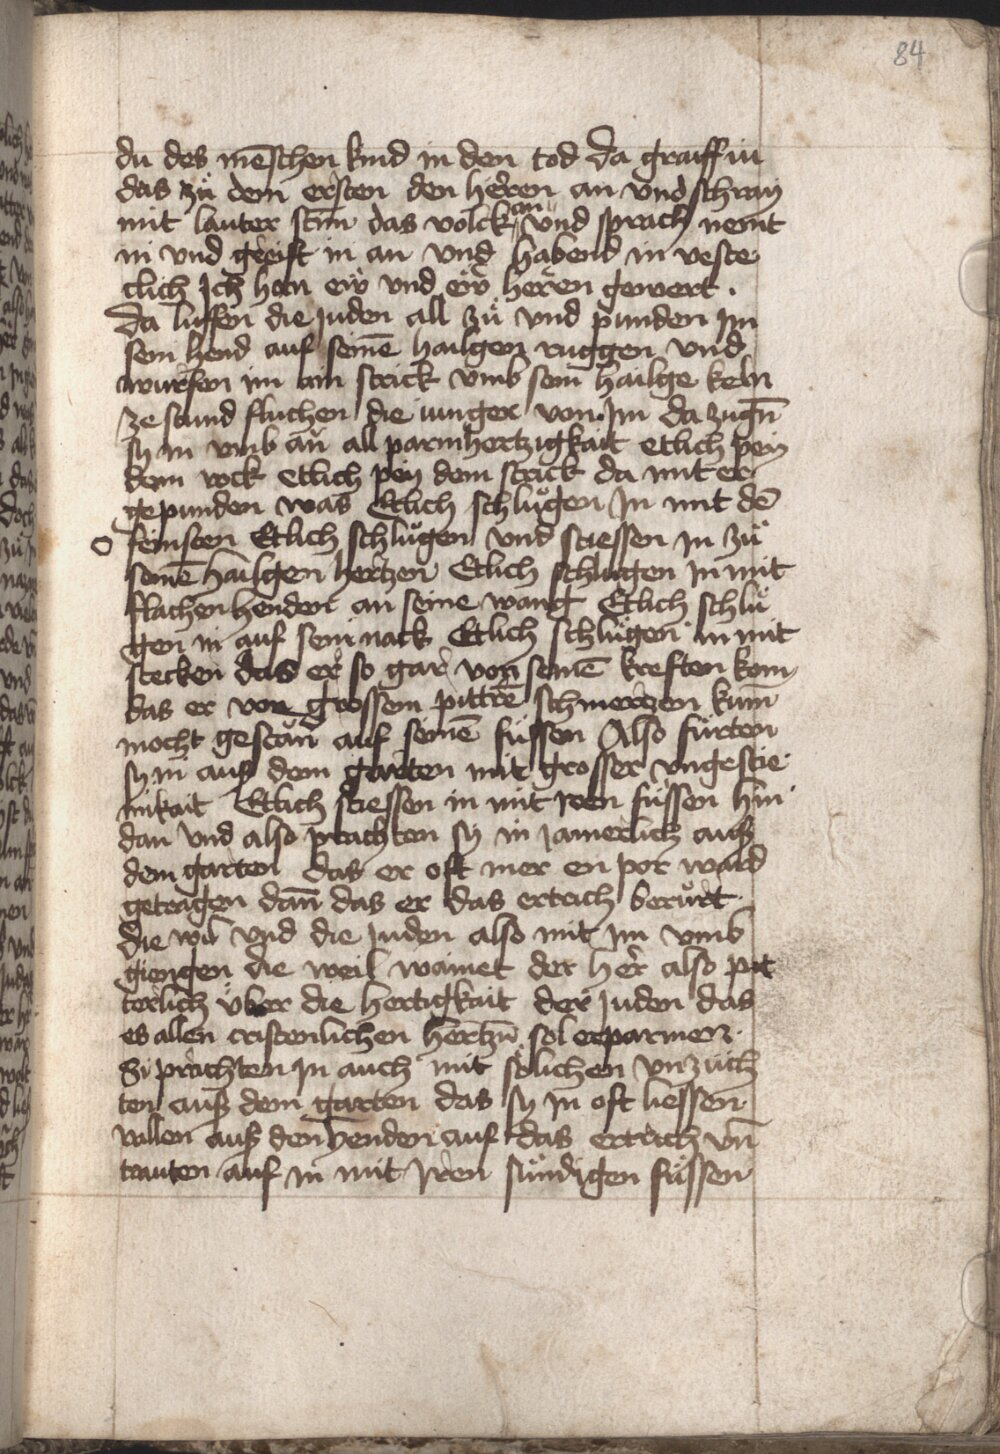 84
du des mēschen kind in den tod da graiff in
das zů dem ersten den herren an vnd schray
mit lauter stim das volck an vnd sprach nemt
in vnd greift in an vnd habend in veste
clich Ich han eẅ vnd eẅ herren gewert .
da luffen die juden all zů vnd punden Im
sein hend auf seinē hailgen ruggen vnd
wurfen im ain strick vmb sein hailge keln
ze stund fluchen die iunger von Im da zugn̄
sy in vmb an̄ all parmhertzigkait etlich pey
dem rock etlich pey dem strick da mit er
gepunden was Etlich schlůgen In mit dē
o feinsten Etlich schlůgen vnd stiessen In zů
seinē hailgen hertzen Etlich schlugen In mit
flachen henden an seine wang Etlich schlů
gen in auf sein nack Etlich schlůgen in mit
stecken das er so gar von seinē kreften kom
das er von grossem pittrē schmertzen kum̄
mocht gestan̄ auf seinē füssen Also fürten
sy in auß dem garten mit grosser vngestie
mikait Etlich stiessen in mit iren füssen hin
dan vnd also prachten sy in Jamerlich auß
dem garten das er oft mer en por ward
getragen dan̄ das er das ertrich berůrt
die wil vnd die Juden also mit im vmb
giengen die weil wainet der her also pit
terlich über die hertigkait der Juden das
es allen cristenlichen hertzn̄ sol erparmen .
Si prachten In auch mit sölichen vnzüch
ten auß dem garten das sy in oft liessen
vallen auß den henden auf das ertrich vn̄
trauten auf in mit iren sündigen füssen